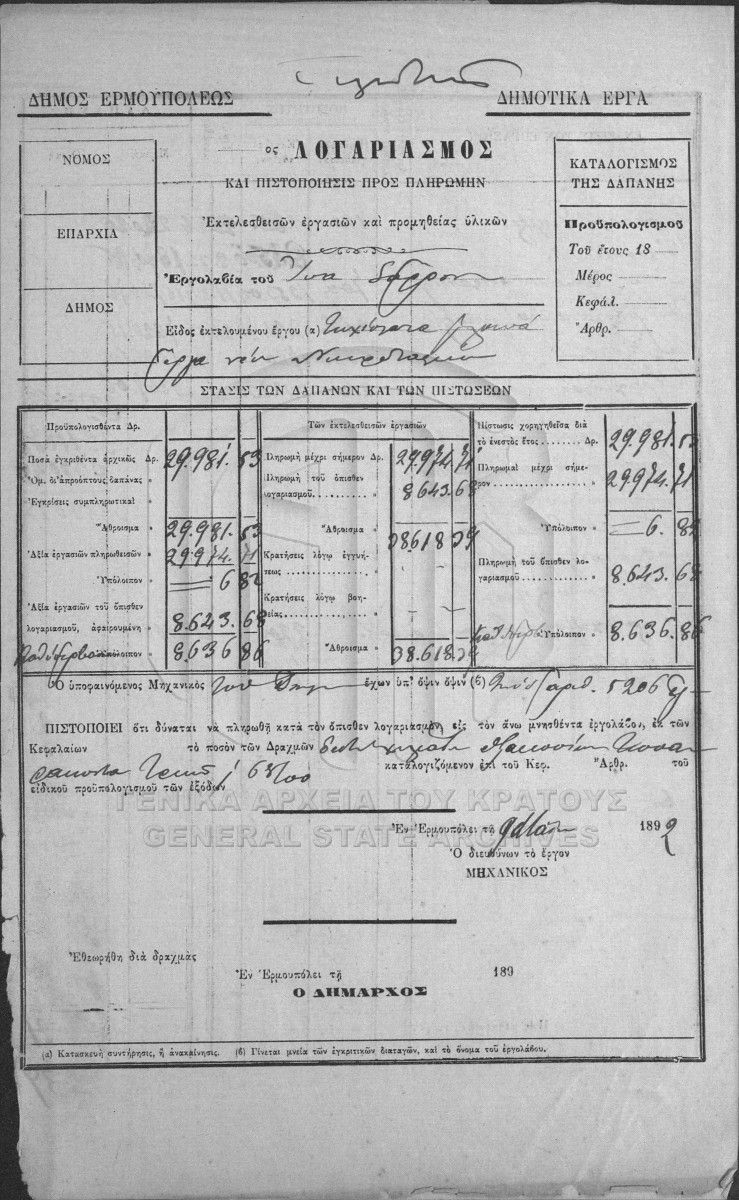 ΔΗΜΟΣ ΕΡΜΟΥΠΟΛΕΩΣ
ΔΗΜΟΤΙΚΑ ΕΡΓΑ
ΝΟΜΟΣ
ΕΠΑΡΧΙΑ
ΔΗΜΟΣ
ος ΛΟΓΑΡΙΑΣΜΟΣ
ΚΑΙ ΠΙΣΤΟΠΟΙΗΣΙΣ ΠΡΟΣ ΠΛΗΡΩΜΗΝ
Ἐκτελεσθεισῶν ἐργασιῶν καὶ προμηθείας ὑλικῶν
Ἐργολαβία τοῦ
Εἶδος ἐκτελουμένου ἔργου (α)
ΚΑΤΑΛΟΓΙΣΜΟΣ
ΤΗΣ ΔΑΠΑΝΗΣ
Προϋπολογισμοῦ
Τοῦ ἔτους 18
Μέρος
Κεφάλ.
Ἄρθρ.
ΣΤΑΣΙΣ ΤΩΝ ΔΑΠΑΝΩΝ ΚΑΙ ΤΩΝ ΠΙΣΤΩΣΕΩΝ
Προϋπολογισθέντα Δρ.
Ποσὰ ἐγκριθέντα ἀρχικῶς Δρ. 29.981. 53
Ὁμ. δι' ἀπροόπτους δαπάνας »
Ἐγκρίσεις συμπληρωτικαὶ »
Ἄθροισμα » 29.981. 53
Ἀξία ἐργασιῶν πληρωθεισῶν » 29.974. 71
Ὑπόλοιπον » 6 82
Ἀξία ἐργασιῶν τοῦ ὄπισθεν
λογαριασμοῦ, ἀφαιρουμένη » 8.643. 68
Ὑπόλοιπον » 8.636 86
Τῶν ἐκτελεσθεισῶν ἐργασιῶν
Πληρωμὴ μέχρι σήμερον Δρ. 29.974. 71
Πληρωμὴ τοῦ ὄπισθεν
λογαριασμοῦ. » 8.643. 68
Ἄθροισμα » 38.618 39
Κρατήσεις λόγῳ ἐγγυήσεως »
Κρατήσεις λόγῳ βοηθείας »
Ἄθροισμα » 38.618. 39
Πίστωσις χορηγηθεῖσα διὰ
τὸ ἐνεστὸς ἔτος Δρ. 29.981. 53
Πληρωμαὶ μέχρι σήμερον » 29.974. 71
Ὑπόλοιπον » 6. 82
Πληρωμὴ τοῦ ὄπισθεν λογαριασμοῦ » 8.643. 68
Ὑπόλοιπον » 8.636. 86
Ὁ ὑποφαινόμενος Μηχανικὸς τοῦ ἔχων ὑπ' ὄψιν ὄψιν (β) 5206
ΠΙΣΤΟΠΟΙΕΙ ὅτι δύναται νὰ πληρωθῇ κατὰ τὸν ὄπισθεν λογαριασμὸν, εἰς τὸν ἄνω μνησθέντα ἐργολάβον, ἐκ τῶν
Κεφαλαίων τὸ ποσὸν τῶν Δραχμῶν
καταλογιζόμενον ἐπὶ τοῦ Κεφ. Ἄρθρ. τοῦ
εἰδικοῦ προϋπολογισμοῦ τῶν ἐξόδων
ΓΕΝΙΚΑ ΑΡΧΕΙΑ ΤΟΥ ΚΡΑΤΟΥΣ
GENERAL STATE ARCHIVES
Ἐν Ἑρμουπόλει τῇ 1892
Ὁ διευθύνων τὸ ἔργον
ΜΗΧΑΝΙΚΟΣ
Ἐθεωρήθη διὰ δραχμὰς
Ἐν Ἑρμουπόλει τῇ 189
Ο ΔΗΜΑΡΧΟΣ
(α) Κατασκευὴ συντήρησις, ἢ ἀνακαίνησις. (β) Γίνεται μνεία τῶν ἐγκριτικῶν διαταγῶν, καὶ τὸ ὄνομα τοῦ ἐργολάβου.